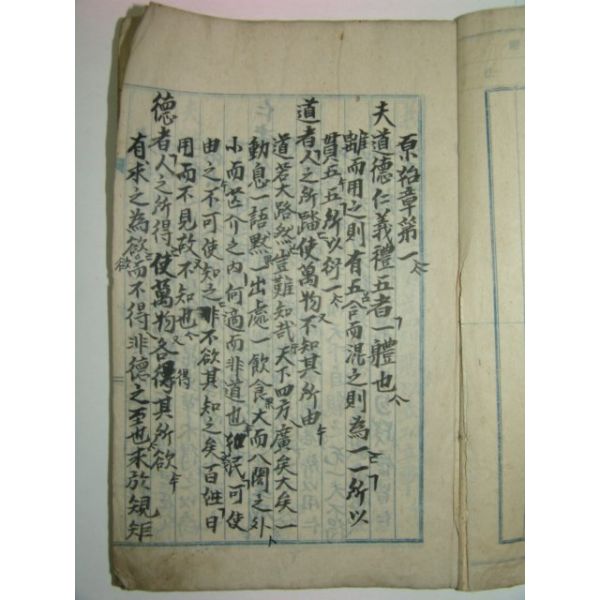 原始章第一
夫道德仁義禮五者一體也
離而用之則有五合而混之則為一一所以
貫五五所以衍一
道者人之所蹈使萬物不知其所由
道若大路然豈難知哉天下四方廣矣大矣一
動息一語默一出處一飲食大而八閎之外
小而芒介之內何適而非道也雖民可使
由之不可使知之非不欲其知之矣百姓日
用而不見故不知也
德者人之所得使萬物各得其所欲
有求之為欲而不得非德之至也求於規矩